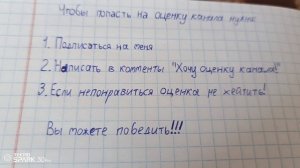 Чтобы попасть на оценку канала нужно
1. Подписаться на меня
2. Написать в комменты "Хочу оценку канала!"
3. Если непонравиться оценка не хейтить!
Вы можете победить!!!
TECNO
SPARK